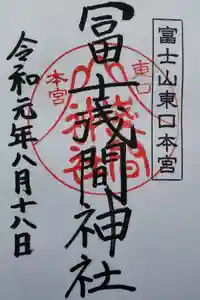 富士山東口本宮
冨士浅間神社
東口
本宮
令和元年八月十八日